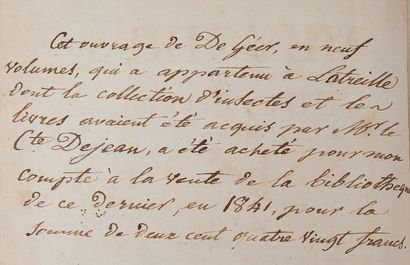 Cet ouvrage de De Géer, en neuf
volumes, qui a appartenu à Latreille
dont la collection d'insectes et les
livres avaient été acquis par Mr. le
Cte Dejean, a été acheté pour mon
compte à la vente de la bibliothèque
de ce dernier, en 1841, pour la
somme de deux cent quatre vingt francs.